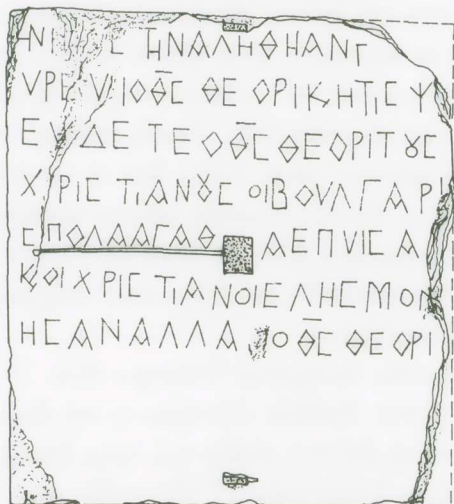 ΤΗΝΑΛΗΘΗΑΝΓ
VΡΕVΙΟΘ̅C ΘΕΟΡΙΚΗΤΙC Ψ
ΕVΔΕΤΕΟΘ̅C ΘΕΟΡΙΤȣC
ΧΡΙCΤΙΑΝȣC ΟΙΒΟVΛΓΑΡΙ
CΠΟΛΑΑΓΑΘΑΕΠVΙCΑ
ΚΟΙΧΡΙCΤΙΑΝΟΙΕΛΗCΜΟΝ
ΗCΑΝΑΛΛΑ ΟΘ̅C ΘΕΟΡΙ